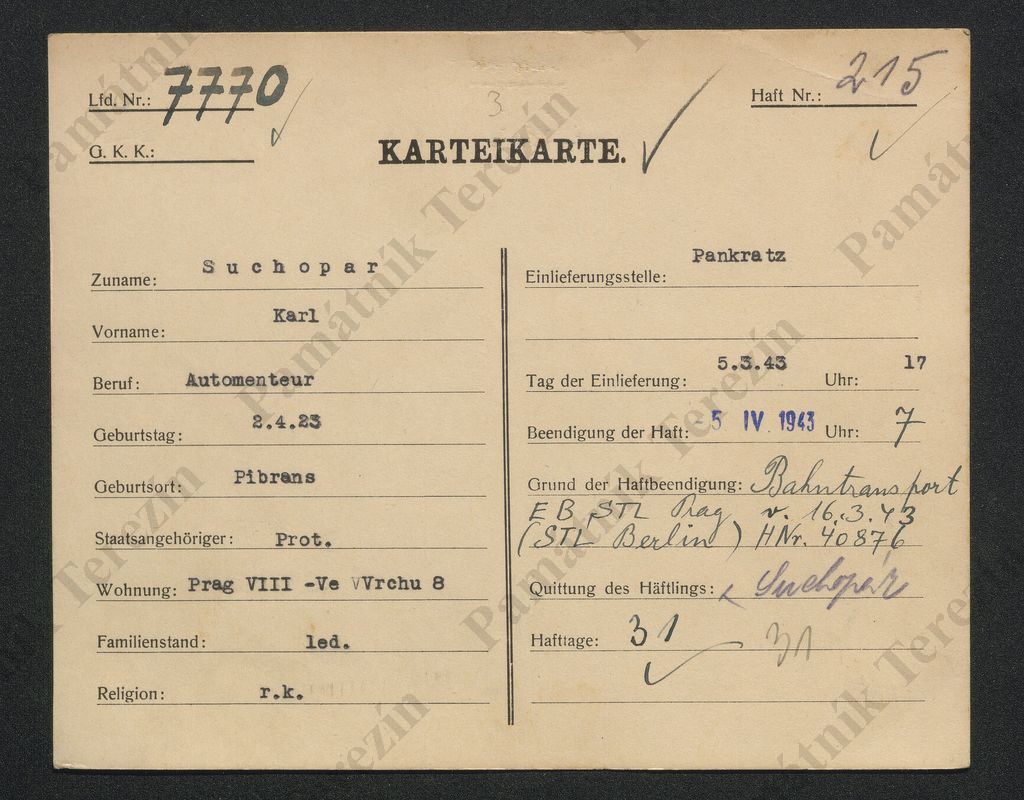 Lfd. Nr.: 7770
Haft Nr.: 215
3
G. K. K.:
KARTEIKARTE.
Zuname: Suchopar
Vorname: Karl
Beruf: Automenteur
Geburtstag: 2.4.23
Geburtsort: Pibrans
Staatsangehöriger: Prot.
Wohnung: Prag VIII -Ve VVrchu 8
Familienstand: led.
Religion: r.k.
Einlieferungsstelle: Pankratz
Tag der Einlieferung: 5.3.43 Uhr: 17
Beendigung der Haft: - 5 IV 1943 Uhr: 7
Grund der Haftbeendigung: Bahntransport
EB STL Prag v. 16.3.43
(STL Berlin) HNr. 40876
Quittung des Häftlings: Suchopár
Hafttage: 31 31
Památník Terezín
Památník Terezín
Památník Terezín
Památník Terezín